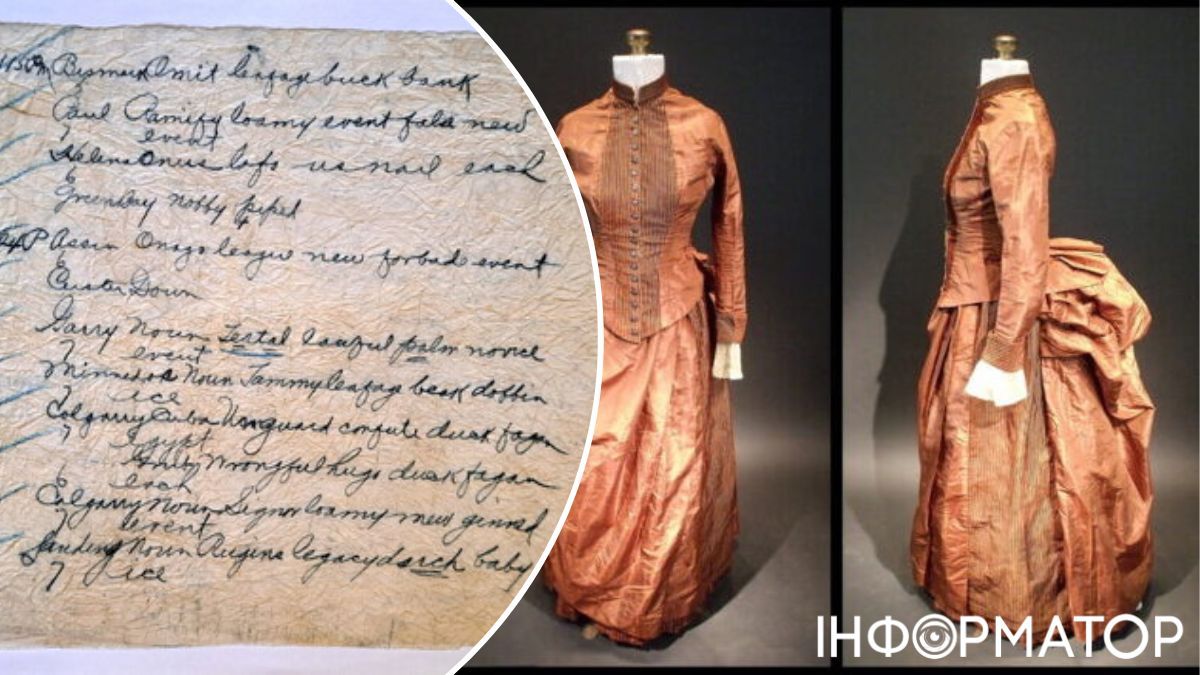 Bismark Omit leafage buck bank
Paul Ramify loamy event false new
event
Helena Onus lofo us nail each
E
Greenbay nobby piped
P Assin Onago league new forbade event
E
Custer Down
Garry Noun Tertal lawful palm novice
event
Minnedos Noun Jammy leafage beak dobbin
7 ice
Calgarry Cuba Unguard confute duck fagan
7 Egypt
Wrongful hugs duck fagan
each
Calgarry Noun Signor loamy new ginned
7 event
Landing Noun Regina legacy darch baby
7 ice
ІНФОРМАТОР